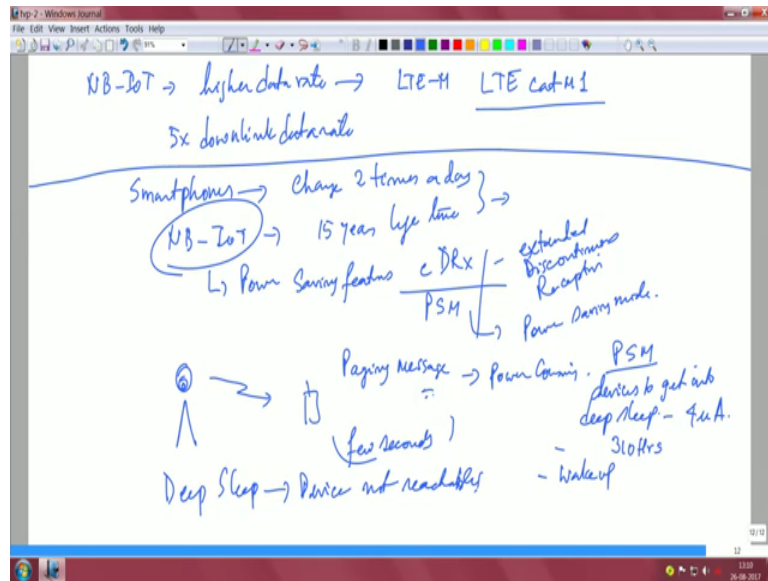 hvp-2 - Windows Journal
File Edit View Insert Actions Tools Help
91%
NB-IoT → higher data rate → LTE-M LTE cat-M1
5x downlink datarate
Smartphones → Charge 2 times a day
NB-IoT → 15 years life time
↳ Power Saving features eDRX - extended Discontinuous Reception
PSM → Power saving mode.
Paging Message → Power Consumin.
PSM
devices to get into
deep sleep - 4uA.
(few seconds)
- 310Hrs
Deep Sleep → Device not reachable
- Wakeup
12/12
12
13:10
26-08-2017